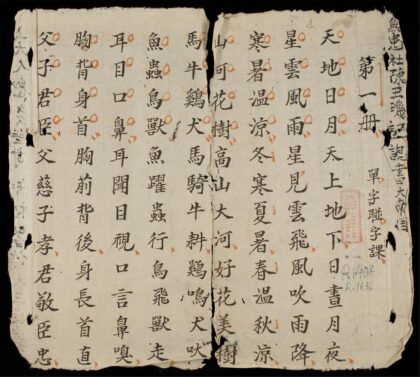 第一冊
單字聯字課
天地日月天上地下日晝月夜
星雲風雨星見雲飛風吹雨降
寒暑温涼冬寒夏暑春温秋涼
山河花樹高山大河好花美樹
馬牛鷄犬馬騎牛耕鷄鳴犬吠
魚蟲鳥獸魚躍蟲行鳥飛獸走
耳目口鼻耳聞目視口言鼻嗅
胸背身首胸前背後身長首直
父子君臣父慈子孝君敬臣忠